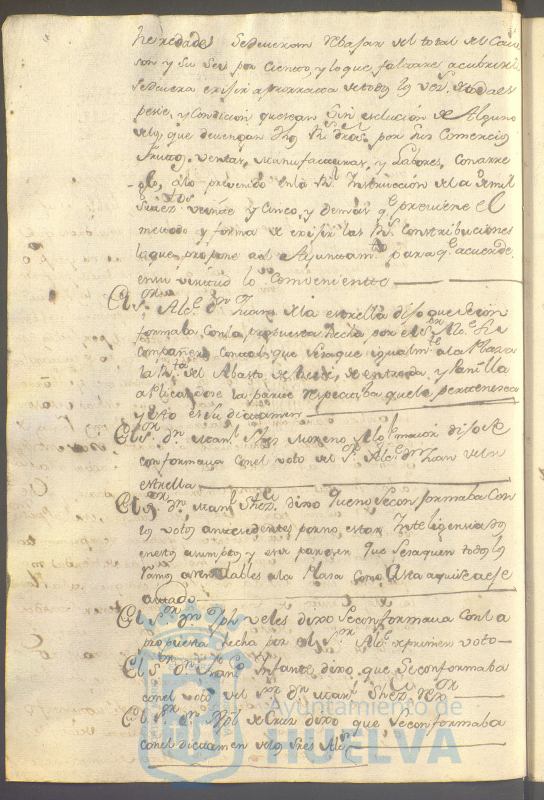 heredades se deveran rebajar del total del Cau
son y su seis por Ciento, y lo que faltare a cubrirse
se devera exijir a prorrata de todos los vez.s de toda es
pesie, y Condicion que sean Sin esclucion de Alguno
de los que devengan dhos R.s dros. por sus Comercios
frutos, ventas, Manufacturas, y Labores, Con arre
glo, a lo prevenido en la R.l Instruccion de
veinte y Cinco, y demas q.e previene el
metodo y forma de exijir las R.s Contribuciones
lo que propone al Ayuntam.to para q.e acuerde
en su vista lo Combeniente
El S.or Alc.e d.n Juan de la estrella dijo que se con
formaba Con la propuesta hecha por el S.or Alc.e su
Compañero Con mas que se saque igualm.te a la Plaza
la R.ta del Abasto de de entrada, y Panilla
aplicandose la parte que le pertenesca
y esto es su dictamen
El S.or d.n Man.l Moreno Alg.l maior dijo se
conformava con el voto del S.or Alc.e d.n Juan de la
estrella
El S.or d.n Man.l Shez. dixo que no se conformaba Con
los votos antecedentes por no estar Inteligenciado
en estos asumptos y era parecer que se saquen todos los
ramos arrendables a la Plaza como asta aqui se a e
actado
El S.or d.n Jph Veles dixo se conformava Con la
propuesta hecha por el S.or Alc.e de primer voto
El S.or d.n Fran.co Infante dixo que se conformaba
con el voto del S.or d.n Man.l Shez.
El S.or d.n de Cruz dixo que se conformaba
con el dictamen
Ayuntamiento de
HUELVA